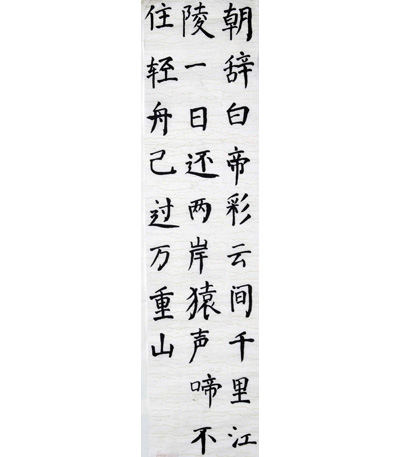 朝辞白帝彩云间千里江
陵一日还两岸猿声啼不
住轻舟已过万重山